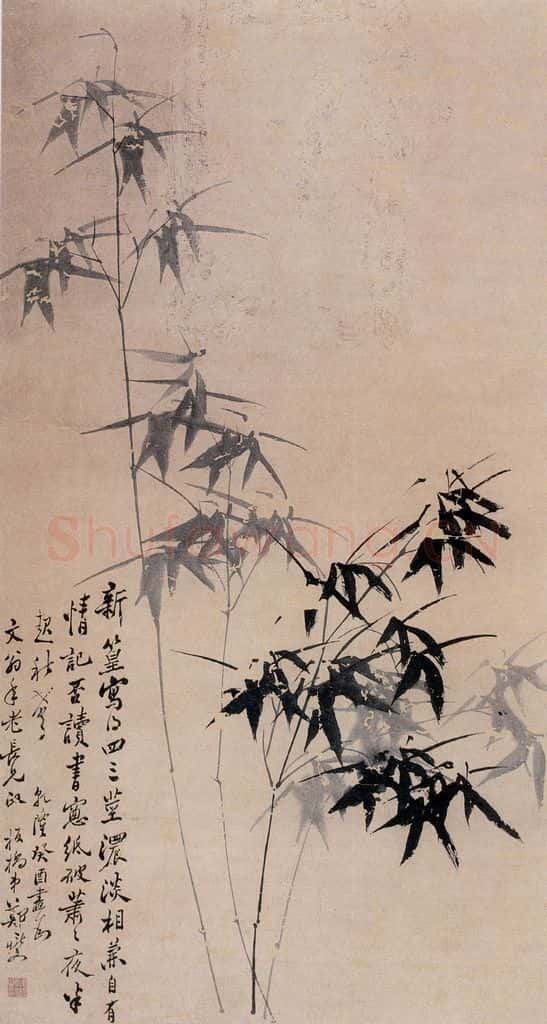 新篁寫得四三莖濃淡相兼自有
情記否讀書窻紙破蕭〻夜半
起秋聲 乾隆癸酉畫為
文翁年老長兄政 板橋弟鄭燮
Shufawang.CN